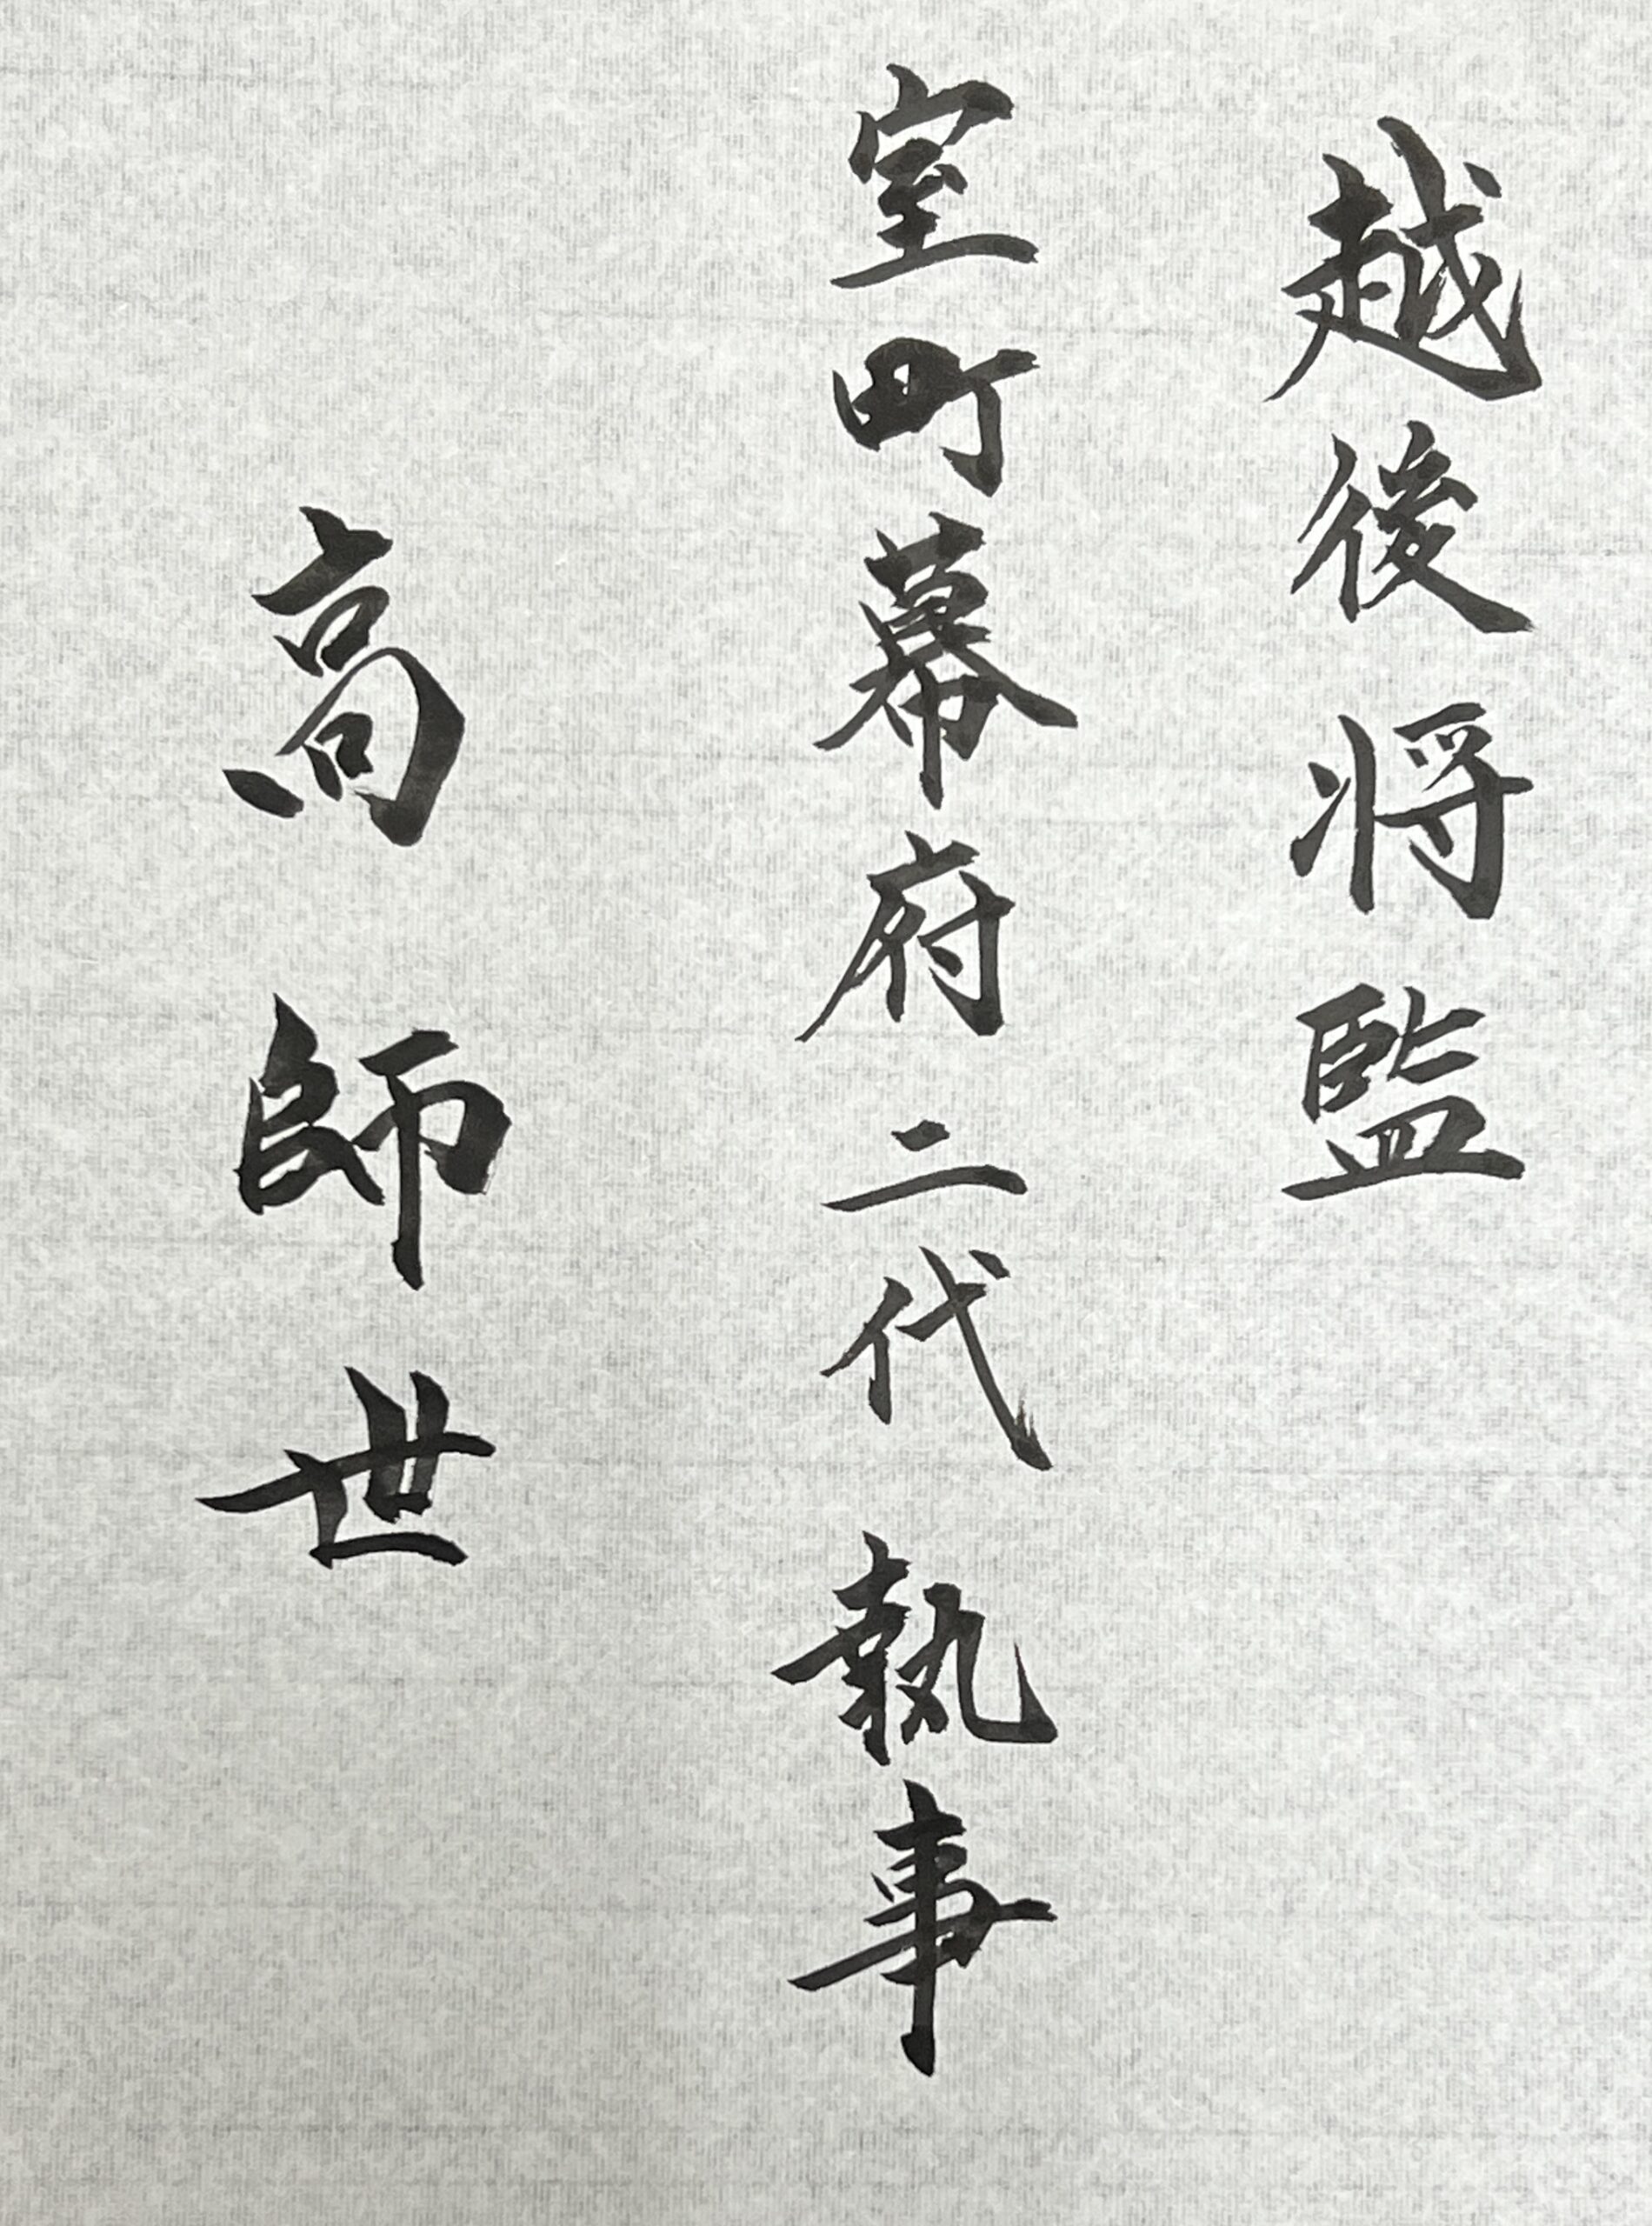 越後将監
室町幕府二代 執事
高師世